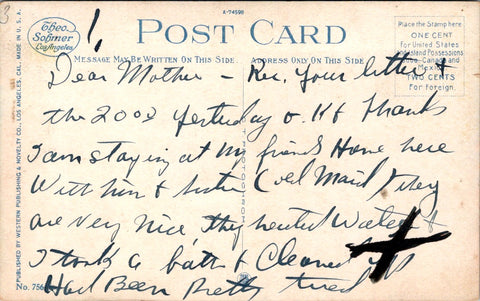 1,
A-74598
Theo.
Sohmer
Los Angeles
POST CARD
Place the Stamp here
ONE CENT
for United States
and Island Possessions
Cuba, Canada and
Mexico
TWO CENTS
For Foreign.
MESSAGE MAY BE WRITTEN ON THIS SIDE
ADDRESS ONLY ON THIS SIDE
PUBLISHED BY WESTERN PUBLISHING & NOVELTY CO., LOS ANGELES, CAL. MADE IN U. S. A.
Dear Mother - Rec, your letter &
the 200$ yesterday O.K & thanks
I am staying at my friends Home here
With him & sister Maid they
are very nice they heated Water &
I took a bath & Cleaned up
Had Been Pretty tired
No. 756